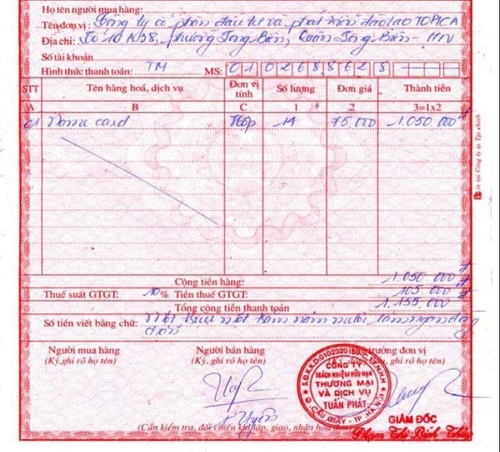 Họ tên người mua hàng:
Tên đơn vị: Công ty cổ phần đầu tư và phát triển đào tạo TOPICA
Địa chỉ: Số 10 K38, phường Long Biên, Quận Long Biên - HN
Số tài khoản
Hình thức thanh toán: TM MS: 0102688628
STT Tên hàng hoá, dịch vụ Đơn vị tính Số lượng Đơn giá Thành tiền
A B C 1 2 3=1x2
01 Name card Hộp 14 75.000 1.050.000 đ
Cộng tiền hàng: 1.050.000 đ
Thuế suất GTGT: 10% Tiền thuế GTGT: 105.000 đ
Tổng cộng tiền thanh toán 1.155.000 đ
Số tiền viết bằng chữ: Một triệu một trăm năm mươi lăm ngàn đồng
Người mua hàng Người bán hàng trưởng đơn vị
(Ký, ghi rõ họ tên) (Ký, ghi rõ họ tên)
CÔNG TY
TRÁCH NHIỆM HỮU HẠN
THƯƠNG MẠI
VÀ DỊCH VỤ
TUẤN PHÁT
Q. CẦU GIẤY - TP. HÀ NỘI
Huyền
GIÁM ĐỐC
(Cần kiểm tra, đối chiếu khi lập, giao, nhận hoá đơn)
Phạm Thị Bích Thủy